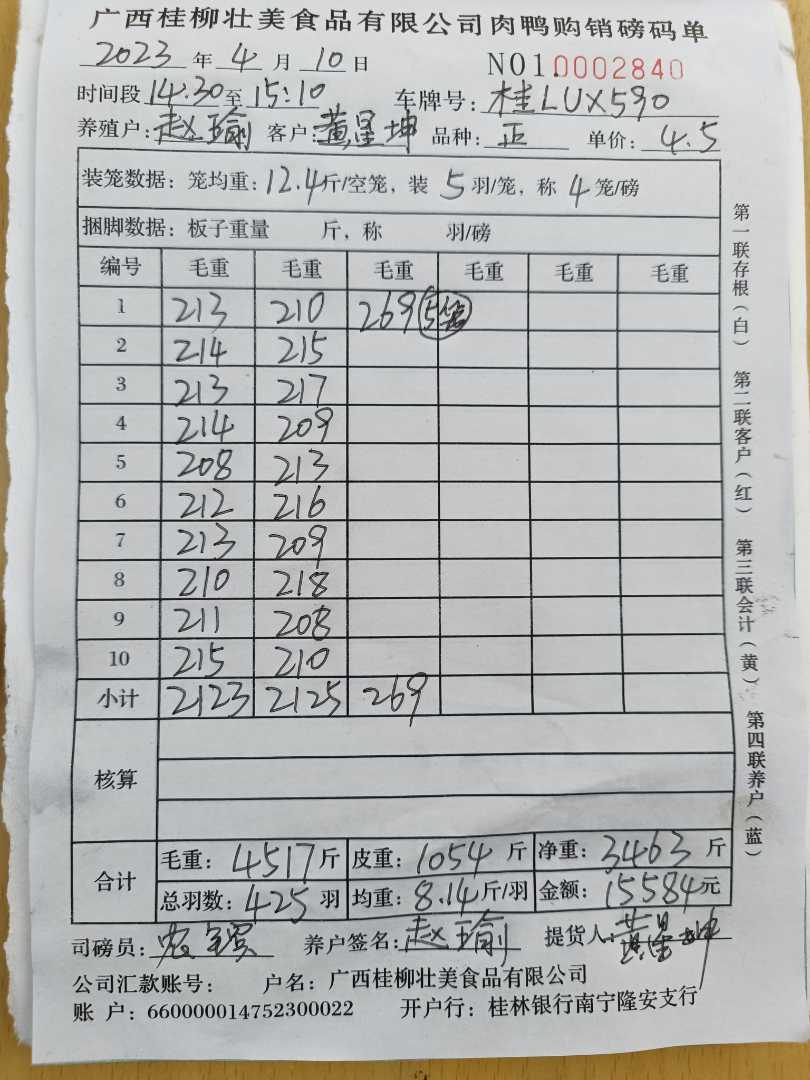 广西桂柳壮美食品有限公司肉鸭购销磅码单
2023 年 4 月 10 日 NO1.0002840
时间段 14:30 至 15:10 车牌号: 桂LUX590
养殖户: 赵瑜 客户: 黄星坤 品种: 正 单价: 4.5
装笼数据: 笼均重: 12.4 斤/空笼, 装 5 羽/笼, 称 4 笼/磅
捆脚数据: 板子重量 斤, 称 羽/磅
编号 毛重 毛重 毛重 毛重 毛重 毛重
1 213 210 269 5笼
2 214 215
3 213 217
4 214 209
5 208 213
6 212 216
7 213 209
8 210 218
9 211 208
10 215 210
小计 2123 2125 269
核算
合计 毛重: 4517 斤 皮重: 1054 斤 净重: 3463 斤
总羽数: 425 羽 均重: 8.14 斤/羽 金额: 15584 元
司磅员: 养户签名: 赵瑜 提货人: 黄星坤
公司汇款账号: 户名: 广西桂柳壮美食品有限公司
账 户: 660000014752300022 开户行: 桂林银行南宁隆安支行
第一联存根(白) 第二联客户(红) 第三联会计(黄) 第四联养户(蓝)